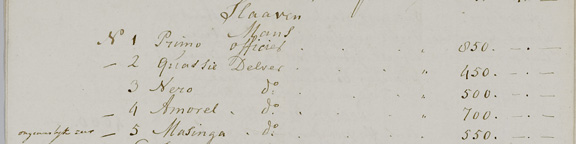 Slaaven
Mans
N° 1 Primo officier . . . " 850. — . —
— 2 Quassie Delver . . . " 450. — . —
3 Nero d° . . . " 500. — . —
— 4 Amorel . d° . . . " 700. — . —
— 5 Masinga . d° . . . " 550. — . —